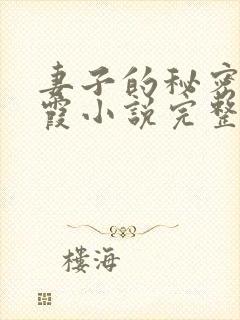 妻子的秘密
霞小说完整
楼海